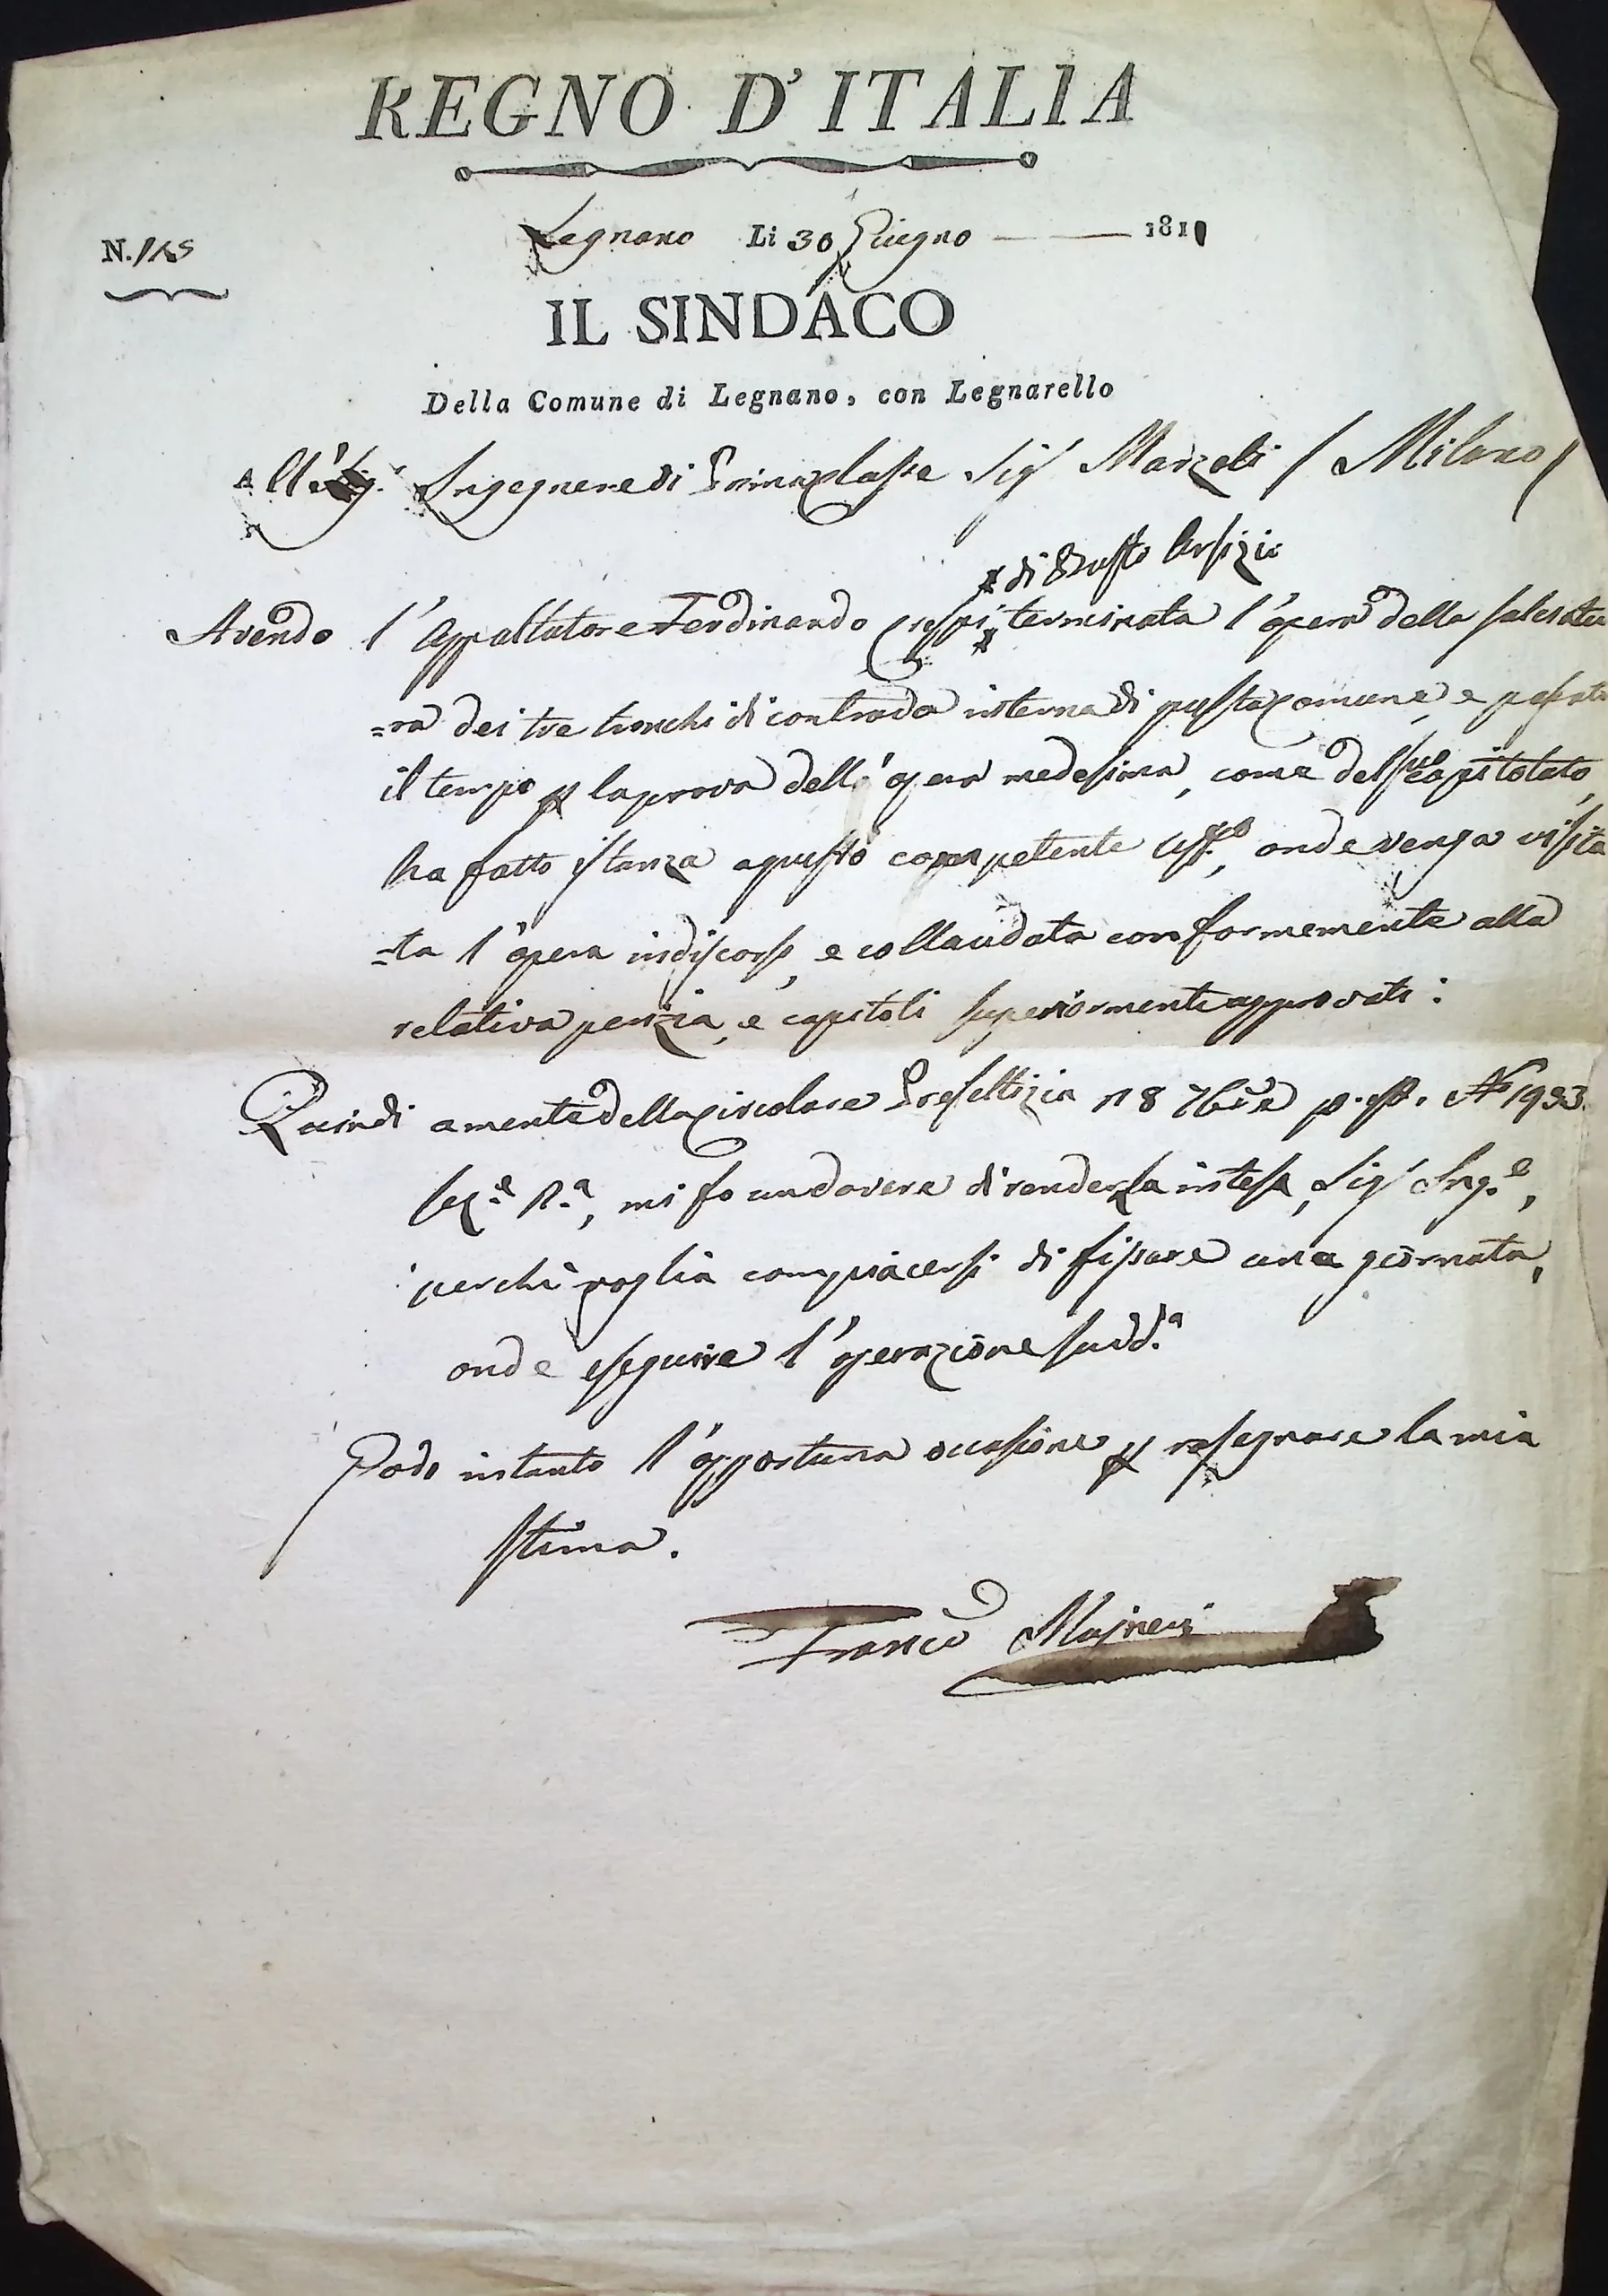 REGNO D'ITALIA
Legnano Li 30 Giugno 1811
N. 165
IL SINDACO
Della Comune di Legnano, con Legnarello
All' Ingegnere di Prima Classe Sig.r Marzoli / Milano /
* di Busto Arsizio
Avendo l'Appaltatore Ferdinando Crespi * terminata l'opera della salciatu
=ra dei tre tronchi di contrada interna di questa Comune, e passato
il tempo p la prova dell'opera medesima, come dal suo Capitolato,
ha fatto istanza a questo competente Uff.o, onde venga visita
=ta l'opera in discorso, e collaudata conformemente alla
relativa perizia, e capitoli superiormente approvati:
Quindi a mente della Circolare Prefettizia 18 7bre p.p. N° 1933.
sez.e 1.a, mi fo un dovere di renderla intesa, Sig.r Ing.e,
perchè voglia compiacersi di fissare una giornata,
onde eseguire l'operazione sudd.a
Godo intanto l'opportuna occasione p rassegnare la mia
stima.
Franc.o Majneri